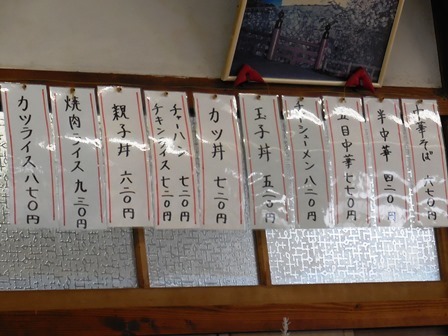 中華そば 六七〇円
半中華 四二〇円
五目中華 七七〇円
チャーシューメン 八二〇円
玉子丼 五二〇円
カツ丼 七二〇円
チャーハン 七二〇円
チキンライス 七二〇円
親子丼 六二〇円
焼肉ライス 九三〇円
カツライス 八七〇円